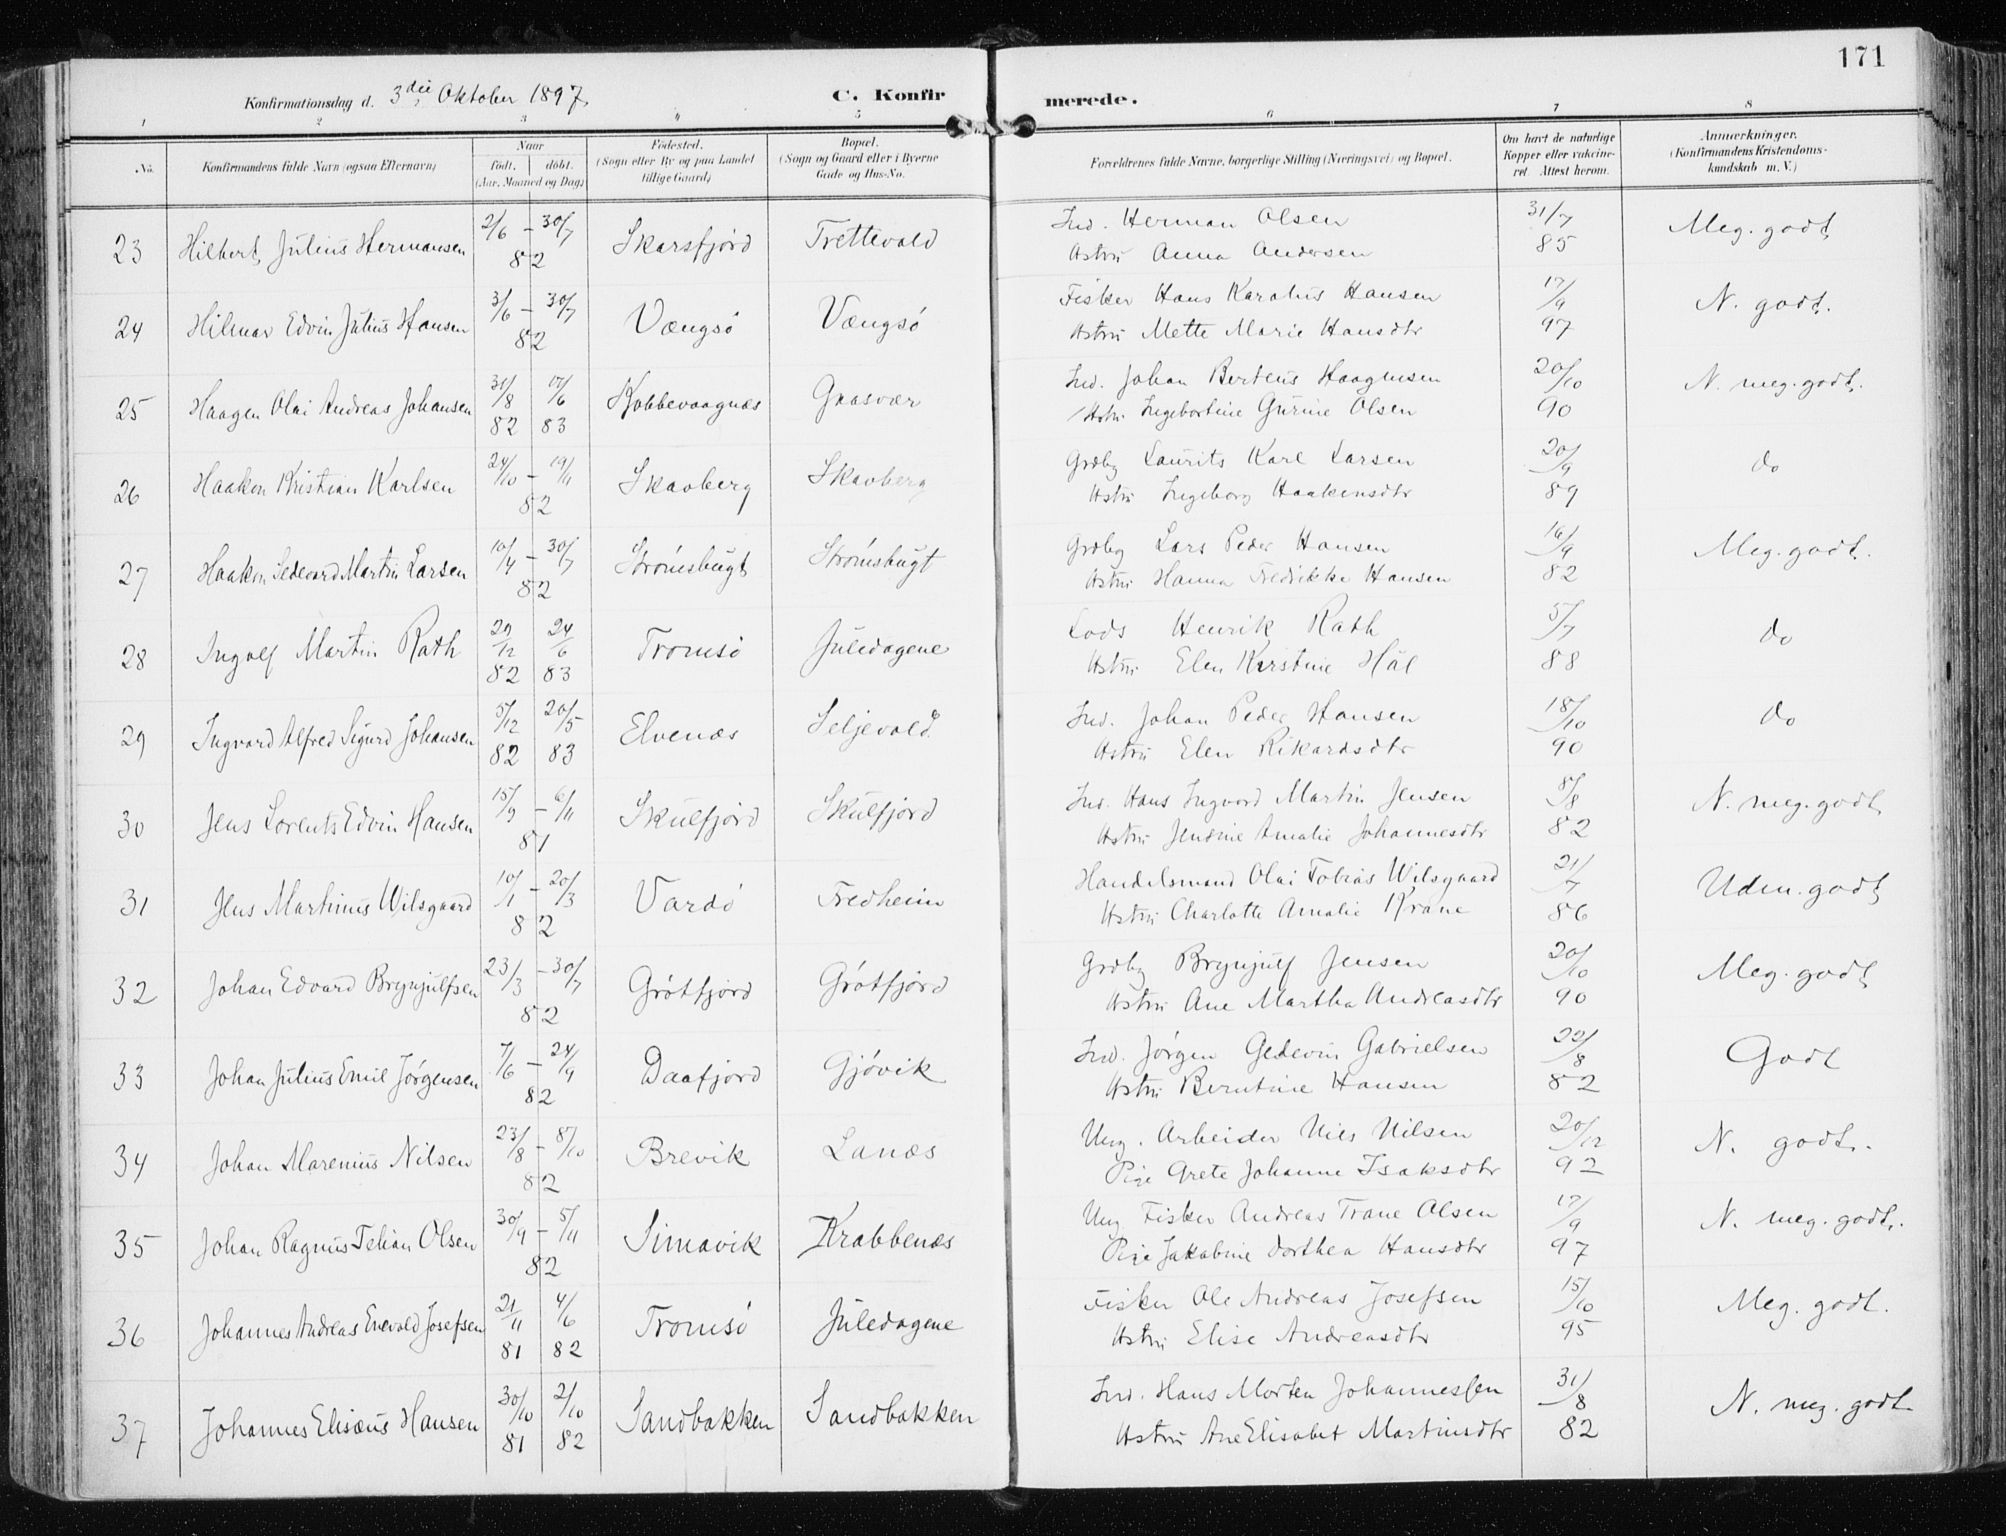 171
Konfirmationsdag d. 3die Oktober 1897.
C. Konfirmerede.
1 2 3 4 5 6 7 8
No. Konfirmandens fulde Navn (ogsaa Efternavn) Naar født. døbt. (Aar, Maaned og Dag) Fødested. (Sogn eller By og paa Landet tillige Gaard) Bopæl. (Sogn og Gaard eller i Byerne Gade og Hus-No. Forældrenes fulde Navne, borgerlige Stilling (Næringsvei) og Bopæl. Om havt de naturlige Kopper eller vakcineret. Attest herom. Anmærkninger. (Konfirmandens Kristendomskundskab m. V.)
23 Hilbert Julius Hermansen 2/6 – 30/7 82 Skarsfjord Trettevold Ind. Herman Olsen 31/7 Meg. godt
Hstru Anna Andersen 85
24 Hilmar Edvin Julius Hansen 3/6 – 30/7 82 Vængsø Vængsø Fisker Hans Karolus Hansen 17/9 N. godt.
Hstru Mette Marie Hansdtr 97
25 Haagen Olai Andreas Johansen 31/8 82 17/6 83 Kobbevaagnæs Gaasvær Ind. Johan Berteus Haagensen 20/10 N. meg. godt.
Hstru Ingebortine Gurine Olsen 90
26 Haakon Kristian Karlsen 24/10 – 19/11 82 Skavberg Skavberg Grdbg Laurits Karl Larsen 20/9 do
Hstru Ingeborg Haakensdtr 89
27 Haakon Martin Larsen 10/4 – 30/7 82 Strømsbugt Strømsbugt Grdbg Lars Peder Hansen 16/9 Meg. godt.
Hstru Hanna Fredrikke Hansen 82
28 Ingolf Martin Rath 29/12 82 24/6 83 Tromsø Juledagene Lods Henrik Rath 5/7 do
Hstru Elen Kirstine Hål 88
29 Ingvard Alfred Sigurd Johansen 5/12 82 20/5 83 Elvenæs Seljevold Ind. Johan Peder Hansen 18/10 do
Hstru Elen Rikardsdtr 90
30 Jens Lorents Edvin Hansen 15/9 – 6/11 81 Skulfjord Skulfjord Ind. Hans Ingvord Martin Jensen 8/8 N. meg. godt
Hstru Jendine Amalie Johannesdtr 82
31 Jens Martinus Wilsgaard 10/1 – 20/3 82 Vardø Fredheim Handelsmand Olai Tobias Wilsgaard 21/7 Udm. godt
Hstru Charlotte Amalie Krane 86
32 Johan Edvard Brynjulfsen 23/3 – 30/7 82 Grøtfjord Grøtfjord Grdbg Brynjulf Jensen 20/10 Meg. godt
Hstru Ane Martha Andreasdtr 90
33 Johan Julius Emil Jørgensen 7/6 – 24/9 82 Daafjord Gjøvik Ind. Jørgen Gedevin Gabrielsen 22/8 Godt
Hstru Berntine Hansen 82
34 Johan Marenius Nilsen 23/8 – 8/10 82 Brevik Lanæs Ung. Arbeider Nils Nilsen 20/12 N. godt.
Pige Grete Johanne Isaksdtr 92
35 Johan Ragnus Telian Olsen 30/9 – 5/11 82 Simavik Krabbenæs Ung. Fisker Andreas Trane Olsen 17/9 N. meg. godt.
Pige Jakobine Dorthea Hansdtr 97
36 Johannes Andreas Enevold Josefsen 21/11 81 4/6 82 Tromsø Juledagene Fisker Ole Andreas Josefsen 15/10 Meg. godt.
Hstru Elise Andreasdtr 95
37 Johannes Elisæus Hansen 30/10 81 2/10 82 Sandbakken Sandbakken Ind. Hans Morten Johannessen 31/8 N. meg. godt
Hstru Ane Elisabet Martinsdtr 82